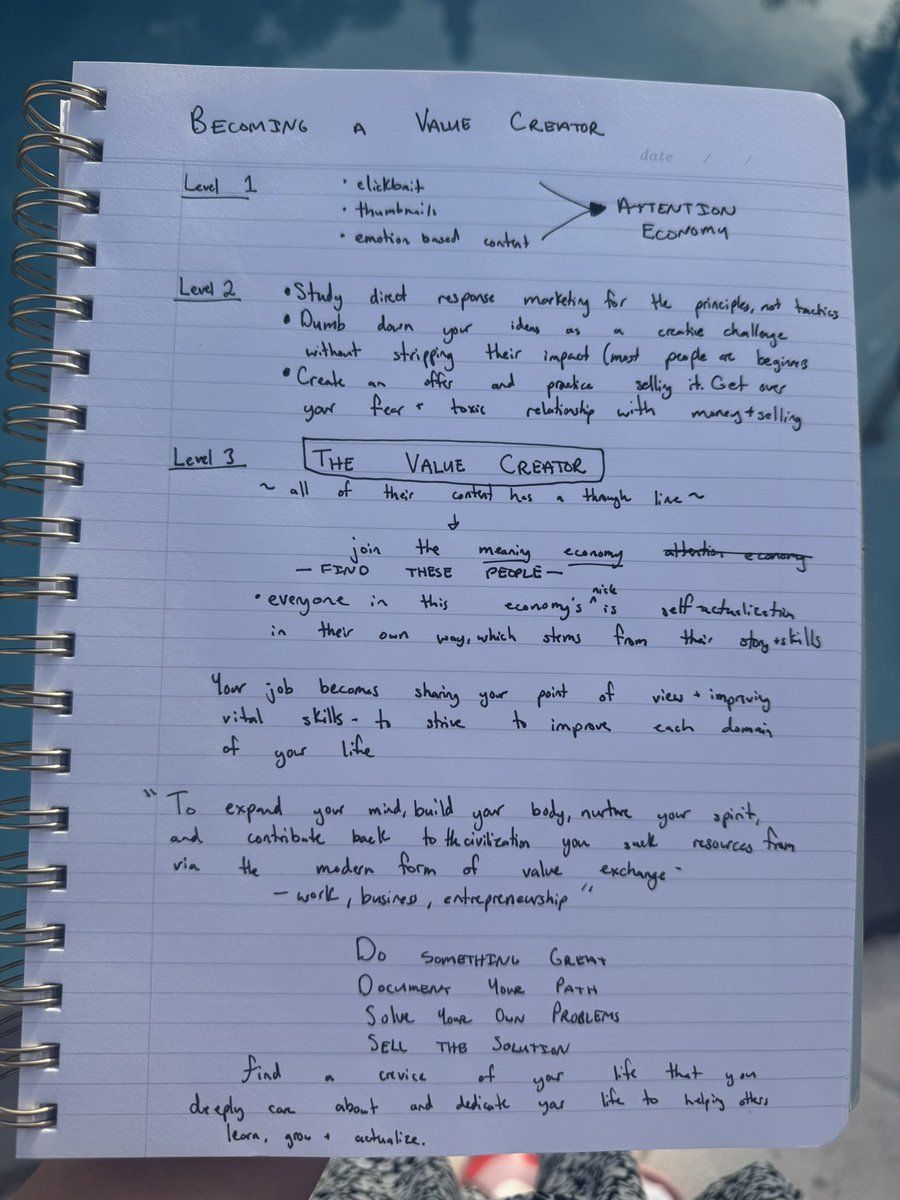 BECOMING A VALUE CREATOR
date / /
Level 1
• clickbait
• thumbnails
• emotion based content
ATTENTION
ECONOMY
Level 2
• Study direct response marketing for the principles, not tactics
• Dumb down your ideas as a creative challenge
without stripping their impact (most people are beginners
• Create an offer and practice selling it. Get over
your fear + toxic relationship with money + selling
Level 3
THE VALUE CREATOR
~ all of their content has a through line ~
↓
join the meaning economy attention economy
— FIND THESE PEOPLE —
• everyone in this economy's ^ is self-actualization
in their own way, which stems from their story + skills
Your job becomes sharing your point of view + improving
vital skills - to strive to improve each domain
of your life
" To expand your mind, build your body, nurture your spirit,
and contribute back to the civilization you suck resources from
via the modern form of value exchange -
— work, business, entrepreneurship "
DO SOMETHING GREAT
DOCUMENT YOUR PATH
SOLVE YOUR OWN PROBLEMS
SELL THE SOLUTION
find a crevice of your life that you
deeply care about and dedicate your life to helping others
learn, grow + actualize.